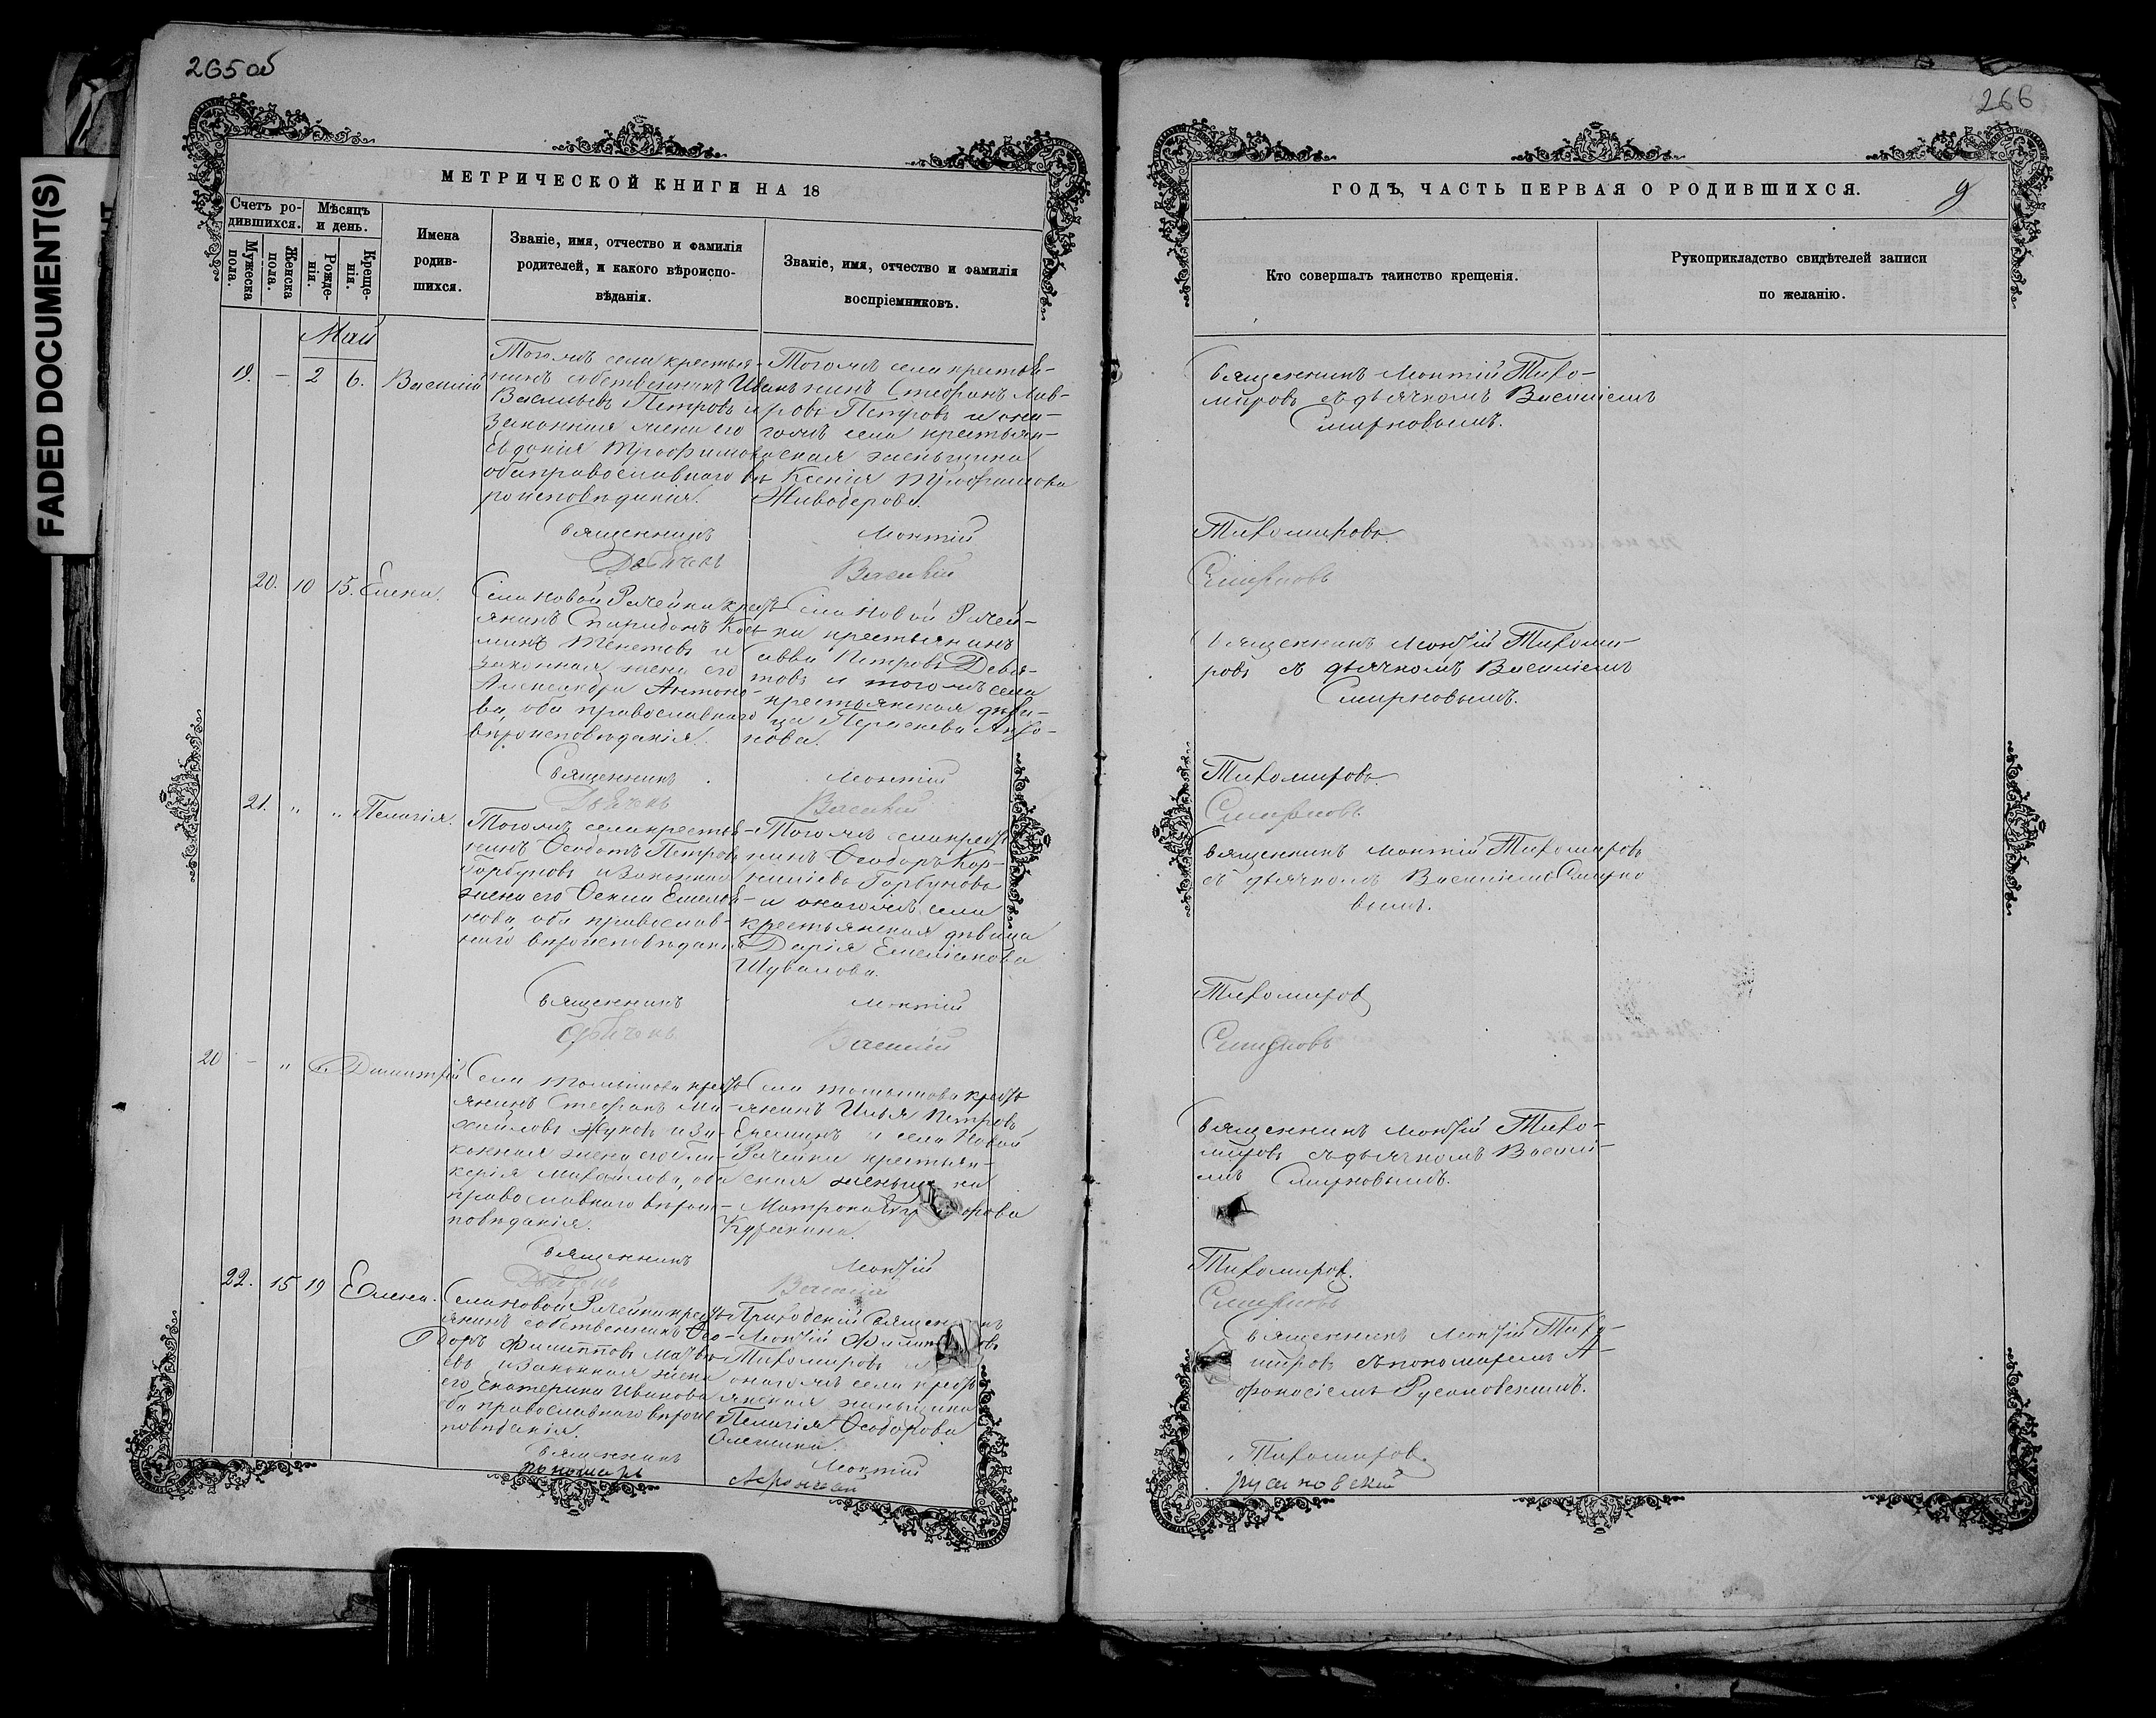 265об
FADED DOCUMENT(S)
МЕТРИЧЕСКОЙ КНИГИ НА 18
Счетъ ро-
дившихся.
Мѣсяцъ
и день.
Мужеска
пола.
Женска
пола.
Рожде-
нія.
Креще-
нія.
Имена
родив-
шихся.
Званіе, имя, отчество и фамилія
родителей, и какого вѣроиспо-
вѣданія.
Званіе, имя, отчество и фамилія
воспріемниковъ.
Май
19. - 2 6. Василій
Тогожъ села крестья-
нинъ собственникъ Иванъ
Васильевъ Петровъ и
законная жена его
Евдокія Трофимова
оба православнаго вѣ
роисповѣданія.
Тогожъ села крестья-
нинъ Стефанъ Лав-
ровъ Петровъ и она-
гожъ села крестьян-
ская женьщина
Ксенія Трофимова
Живодерова.
Священникъ Монтій
Дьячекъ Василій
20. 10 15. Елена.
Села Новой Рачейки крестъ
янинъ Спиридонъ Кось
минъ Тенетовъ и
законная жена его
Александра Антоно-
ва, оба православнаго
вѣроисповѣданія.
Села Новой Рачей-
ки крестьянинъ
Савва Петровъ Девя-
товъ и тогожъ села
крестьянская дѣви-
ца Параскева
Священникъ Монтій
Дьячекъ Василій
21. " " Пелагія.
Тогожъ села крестья-
нинъ Ѳеодотъ Петровъ
Горбуновъ и законная
жена его
нова, оба православ-
наго вѣроисповѣданія
Тогожъ села кресть
нинъ Ѳеодоръ Кор-
ниліевъ Горбуновъ
и онагожъ села
крестьянская дѣвица
Дарія Емеліанова
Шувалова.
Священникъ Монтій
Дьячекъ Василій
20 - " Димитрій
Села Томышова крестъ
янинъ Стефанъ Ми-
хайловъ Жуковъ и за-
конная жена его Гли-
керія Михайлова, оба
православнаго вѣроис-
повѣданія.
Села Томышова крестъ
янинъ Илья Петровъ
и села Новой
Рачейки крестьян-
ская женьщина
Матрона
Священникъ Монтій
Дьячекъ Василій
22. 15 19 Елена.
Села Новой Рачейки крестъ
янинъ собственникъ Ѳео-
доръ Филипповъ Матвѣ
евъ и законная жена
его Екатерина Иванова
ба православнаго вѣроис
повѣданія.
Приходскій Священникъ
Монтій
Тихомировъ и
онагожъ села кресть
янская женьщина
Пелагія Ѳеодорова
Священникъ Монтій
Пономарь Афонасій
266
ГОДЪ, ЧАСТЬ ПЕРВАЯ О РОДИВШИХСЯ.
9
Кто совершалъ таинство крещенія.
Рукоприкладство свидѣтелей записи
по желанію.
Священникъ Монтій Тихо-
мировъ съ дьячкомъ Василіемъ
Смирновымъ.
Тихомировъ.
Смирновъ
Священникъ Монтій Тихоми-
ровъ съ дьячкомъ Василіемъ
Смирновымъ.
Тихомировъ.
Смирновъ.
Священникъ Монтій Тихомировъ
съ дьячкомъ Василіемъ Смирно
вымъ.
Тихомировъ
Смирновъ
Священникъ Монтій Тихо-
мировъ съ дьячкомъ Василі-
емъ Смирновымъ.
Тихомировъ.
Смирновъ
Священникъ Монтій Тихо-
мировъ съ пономаремъ А-
фонасіемъ Русановскимъ.
Тихомировъ.
Русановскій